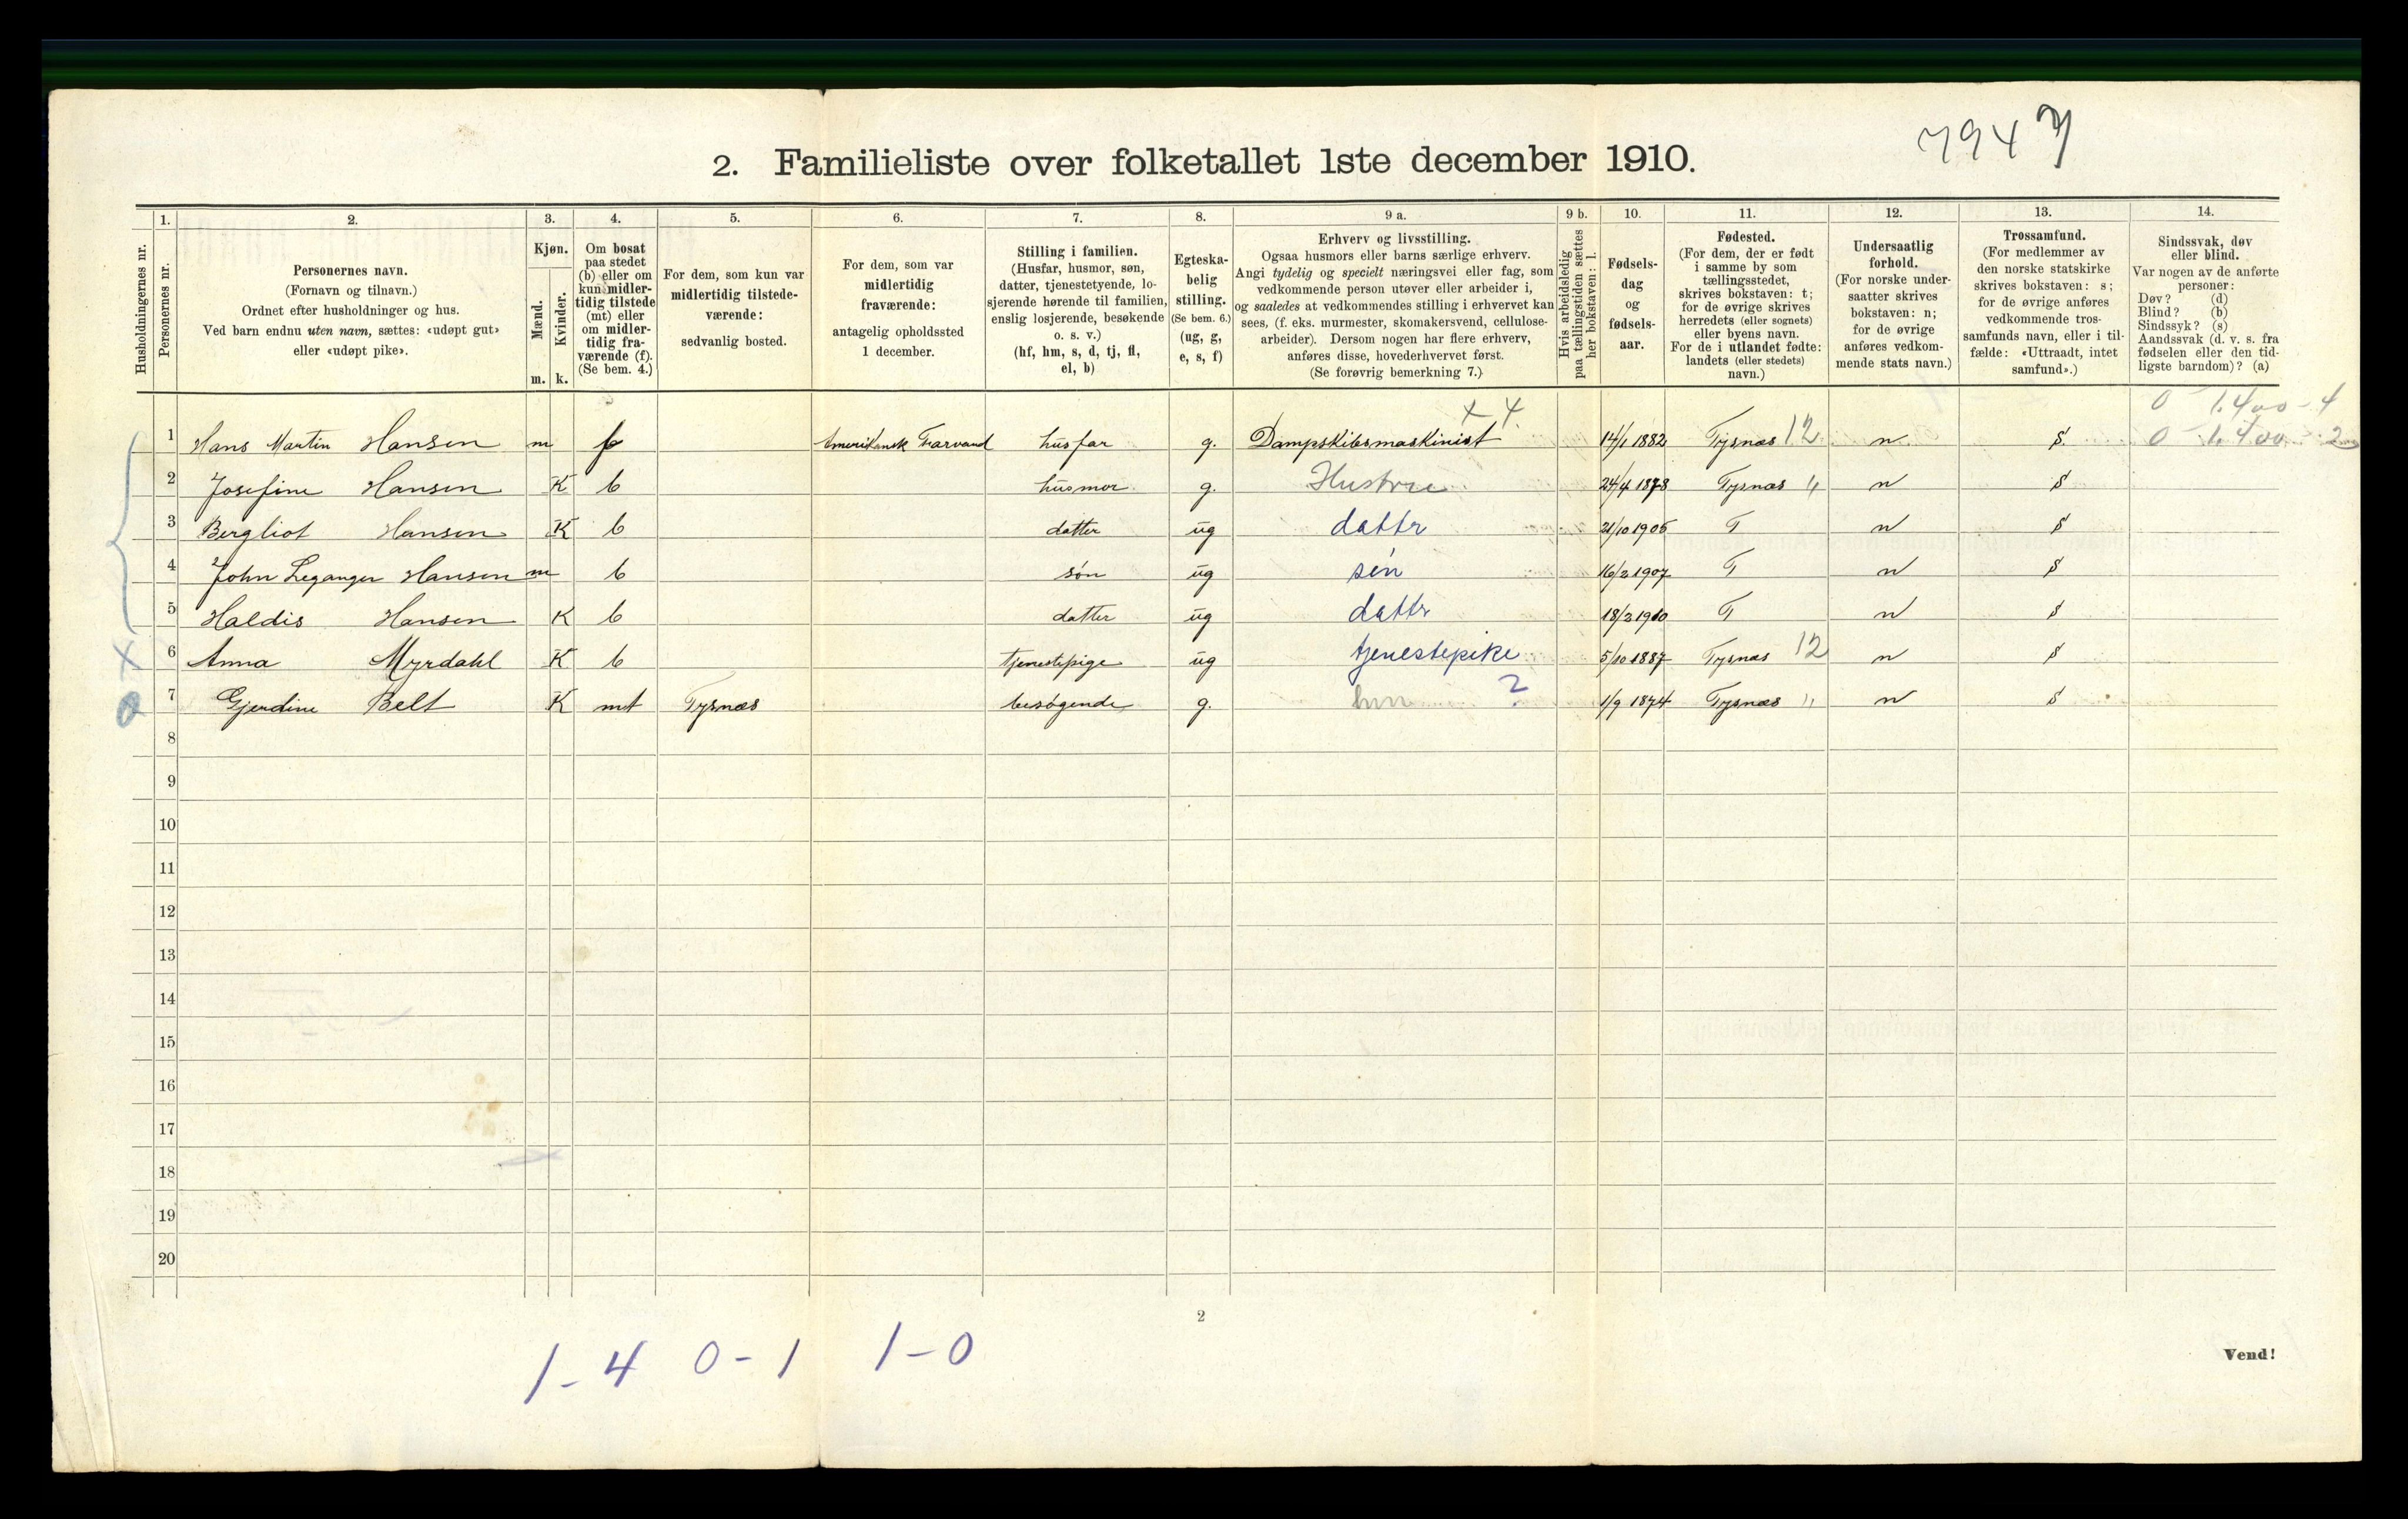 7947
2. Familieliste over folketallet 1ste december 1910.
1. 2. 3. 4. 5. 6. 7. 8. 9 a. 9 b. 10. 11. 12. 13. 14.
Husholdningernes nr.
Personernes nr.
Personernes navn.
(Fornavn og tilnavn.)
Ordnet efter husholdninger og hus.
Ved barn endnu uten navn, sættes: «udøpt gut»
eller «udøpt pike».
Kjøn.
Mænd.
Kvinder.
m. k.
Om bosat
paa stedet
(b) eller om
kun midler-
tidig tilstede
(mt) eller
om midler-
tidig fra-
værende (f).
(Se bem. 4.)
For dem, som kun var
midlertidig tilstede-
værende:
sedvanlig bosted.
For dem, som var
midlertidig
fraværende:
antagelig opholdssted
1 december.
Stilling i familien.
(Husfar, husmor, søn,
datter, tjenestetyende, lo-
sjerende hørende til familien,
enslig losjerende, besøkende
o. s. v.)
(hf, hm, s, d, tj, fl,
el, b)
Egteska-
belig
stilling.
(Se bem. 6.)
(ug, g,
e, s, f)
Erhverv og livsstilling.
Ogsaa husmors eller barns særlige erhverv.
Angi tydelig og specielt næringsvei eller fag, som
vedkommende person utøver eller arbeider i,
og saaledes at vedkommendes stilling i erhvervet kan
sees, (f. eks. murmester, skomakersvend, cellulose-
arbeider). Dersom nogen har flere erhverv,
anføres disse, hovederhvervet først.
(Se forøvrig bemerkning 7.)
Hvis arbeidsledig
paa tællingstiden sættes
her bokstaven: l.
Fødsels-
dag
og
fødsels-
aar.
Fødested.
(For dem, der er født
i samme by som
tællingsstedet,
skrives bokstaven: t;
for de øvrige skrives
herredets (eller sognets)
eller byens navn.
For de i utlandet fødte:
landets (eller stedets)
navn.)
Undersaatlig
forhold.
(For norske under-
saatter skrives
bokstaven: n;
for de øvrige
anføres vedkom-
mende stats navn.)
Trossamfund.
(For medlemmer av
den norske statskirke
skrives bokstaven: s;
for de øvrige anføres
vedkommende tros-
samfunds navn, eller i til-
fælde: «Uttraadt, intet
samfund».)
Sindssvak, døv
eller blind.
Var nogen av de anførte
personer:
Døv? (d)
Blind? (b)
Sindssyk? (s)
Aandssvak (d. v. s. fra
fødselen eller den tid-
ligste barndom)? (a)
x 4. 0 1.400 - 4
1 Hans Martin Hansen m f Amerikansk Farvand husfar g. Dampskibsmaskinist 14/1 1882 Tysnæs 12 n. s. 0 1.400 - 2
2 Josefine Hansen K b husmor g. Hustru 24/4 1878 Tysnæs " n s
3 Bergliot Hansen K b datter ug dattr 21/10 1905 T n s
4 John Leganger Hansen m b søn ug søn 16/2 1907 T n s
5 Haldis Hansen K b datter ug dattr 18/2 1910 T n s
x 6 Anna Myrdahl K b tjenestepige ug tjenestepike 5/10 1887 Tysnæs 12 n s
0 7 Gjerdine Belt K mt Tysnæs besøgende g. hm ? 1/9 1874 Tysnæs " n s
8
9
10
11
12
13
14
15
16
17
18
19
20
2
1 - 4 0 - 1 1 - 0
Vend!